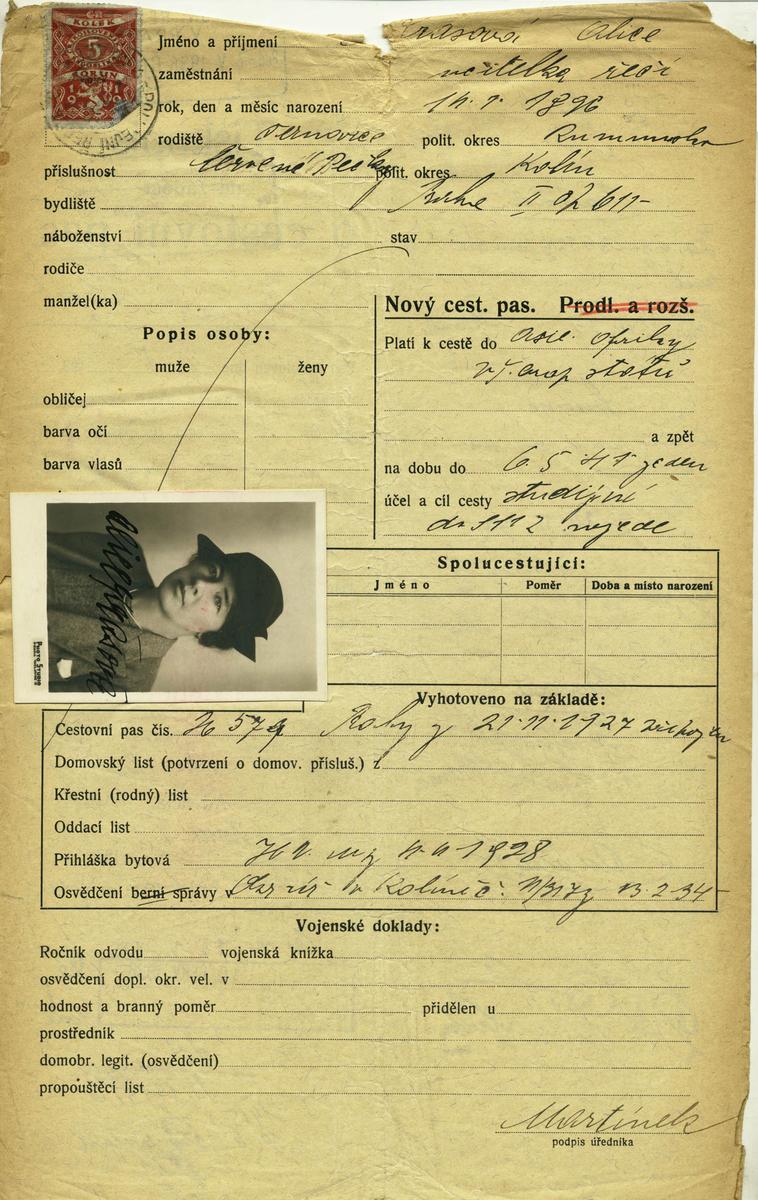 KOLEK
5
KORUN
1919
Jméno a příjmení Alice
zaměstnání učitelka řečí
rok, den a měsíc narození 1896
rodiště Černovice polit. okres
příslušnost Červené Pečky polit. okres Kolín
bydliště II čp 611-
náboženství stav
rodiče
manžel(ka)
Nový cest. pas. Prodl. a rozš.
Popis osoby:
Platí k cestě do asii. afriky
muže ženy
států
obličej
barva očí
a zpět
barva vlasů
na dobu do 6. 5 41
účel a cíl cesty studijní
do nejede
Spolucestující:
Jméno Poměr Doba a místo narození
PHOTO STUDIO
Vyhotoveno na základě:
Cestovní pas čís. 21. 11. 1927
Domovský list (potvrzení o domov. přísluš.) z
Křestní (rodný) list
Oddací list
Přihláška bytová 1928
Osvědčení berní správy v Kolíně č. 13. 2. 34
Vojenské doklady:
Ročník odvodu vojenská knížka
osvědčení dopl. okr. vel. v
hodnost a branný poměr přidělen u
prostředník
domobr. legit. (osvědčení)
propouštěcí list
Martínek
podpis úředníka